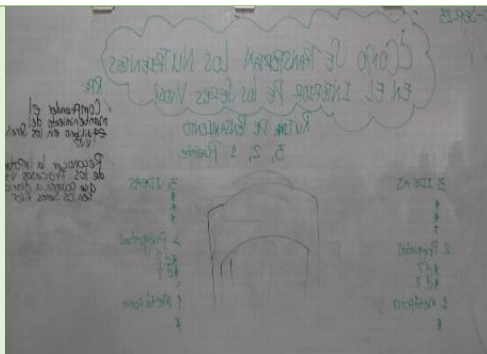 ¿CÓMO SE TRANSPORTAN LOS NUTRIENTES
EN EL INTERIOR DE LOS SERES VIVOS?
RUTINA DE PENSAMIENTO
3, 2, 1 Puente
3 IDEAS
*
*
*
2 Preguntas
*¿ ?
*¿ ?
1 Metáfora
*
3 IDEAS
*
*
*
2 Preguntas
*¿ ?
*¿ ?
1 Metáfora
*
RPA
Comprender el
mantenimiento de
equilibrio en los seres
vivos
Reconocer la
de los Procesos
que a diario
en los Seres Vivos